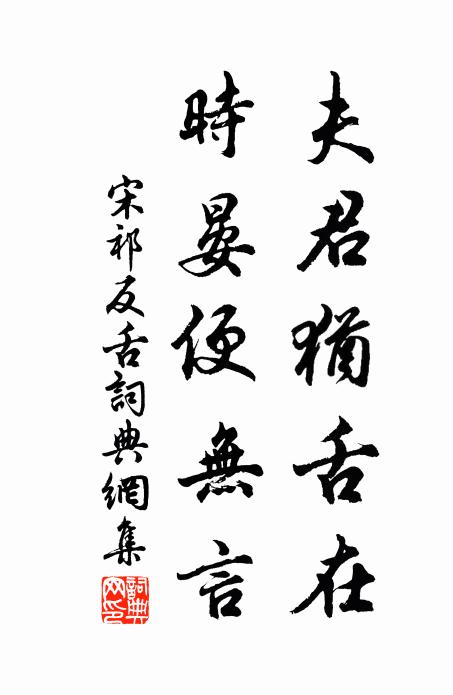 夫君猶舌在
時晏便無言
宋祁反舌詞典網集
詞典網印